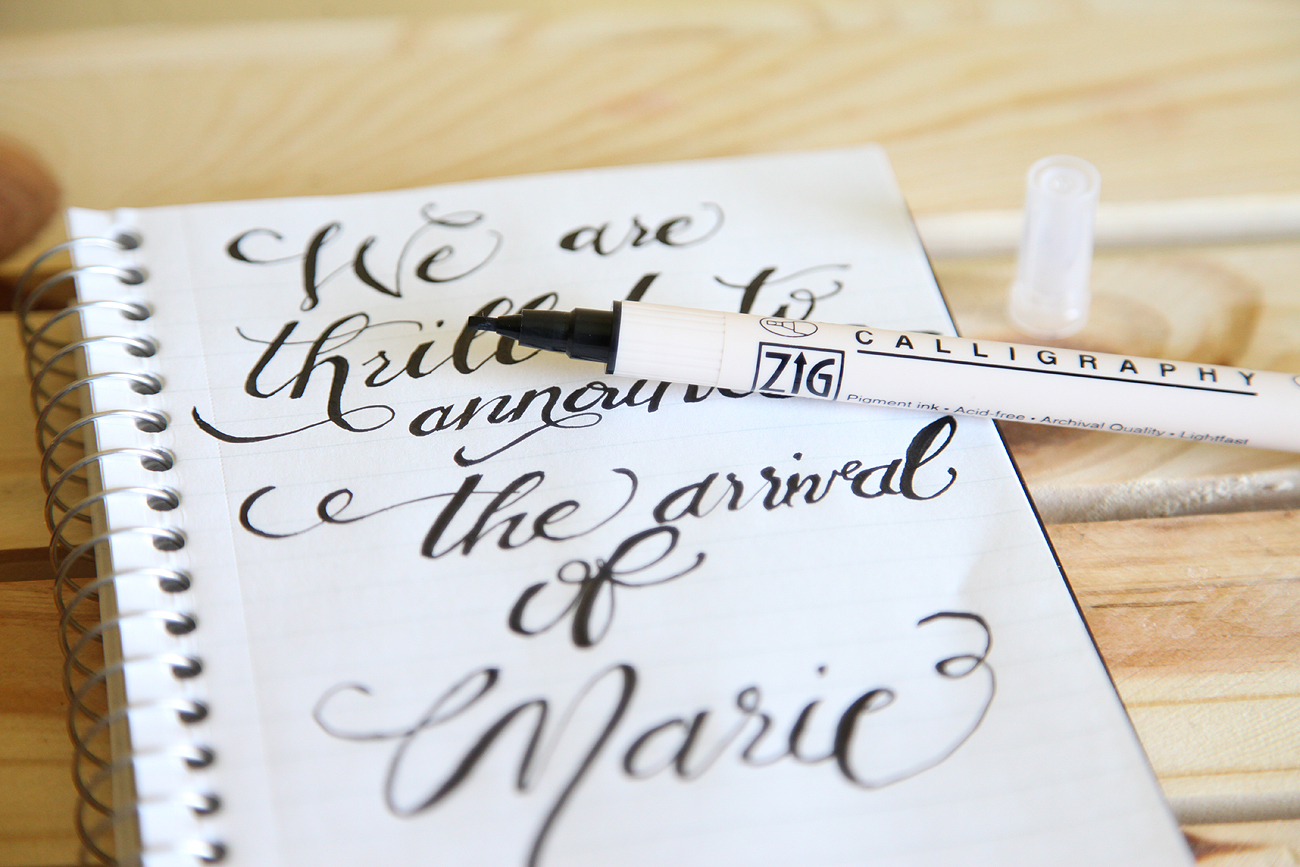 We are
thrilled to
announce
the arrival
of
Marie
ZIG
CALLIGRAPHY
Pigment ink • Acid-free • Archival Quality • Lightfast